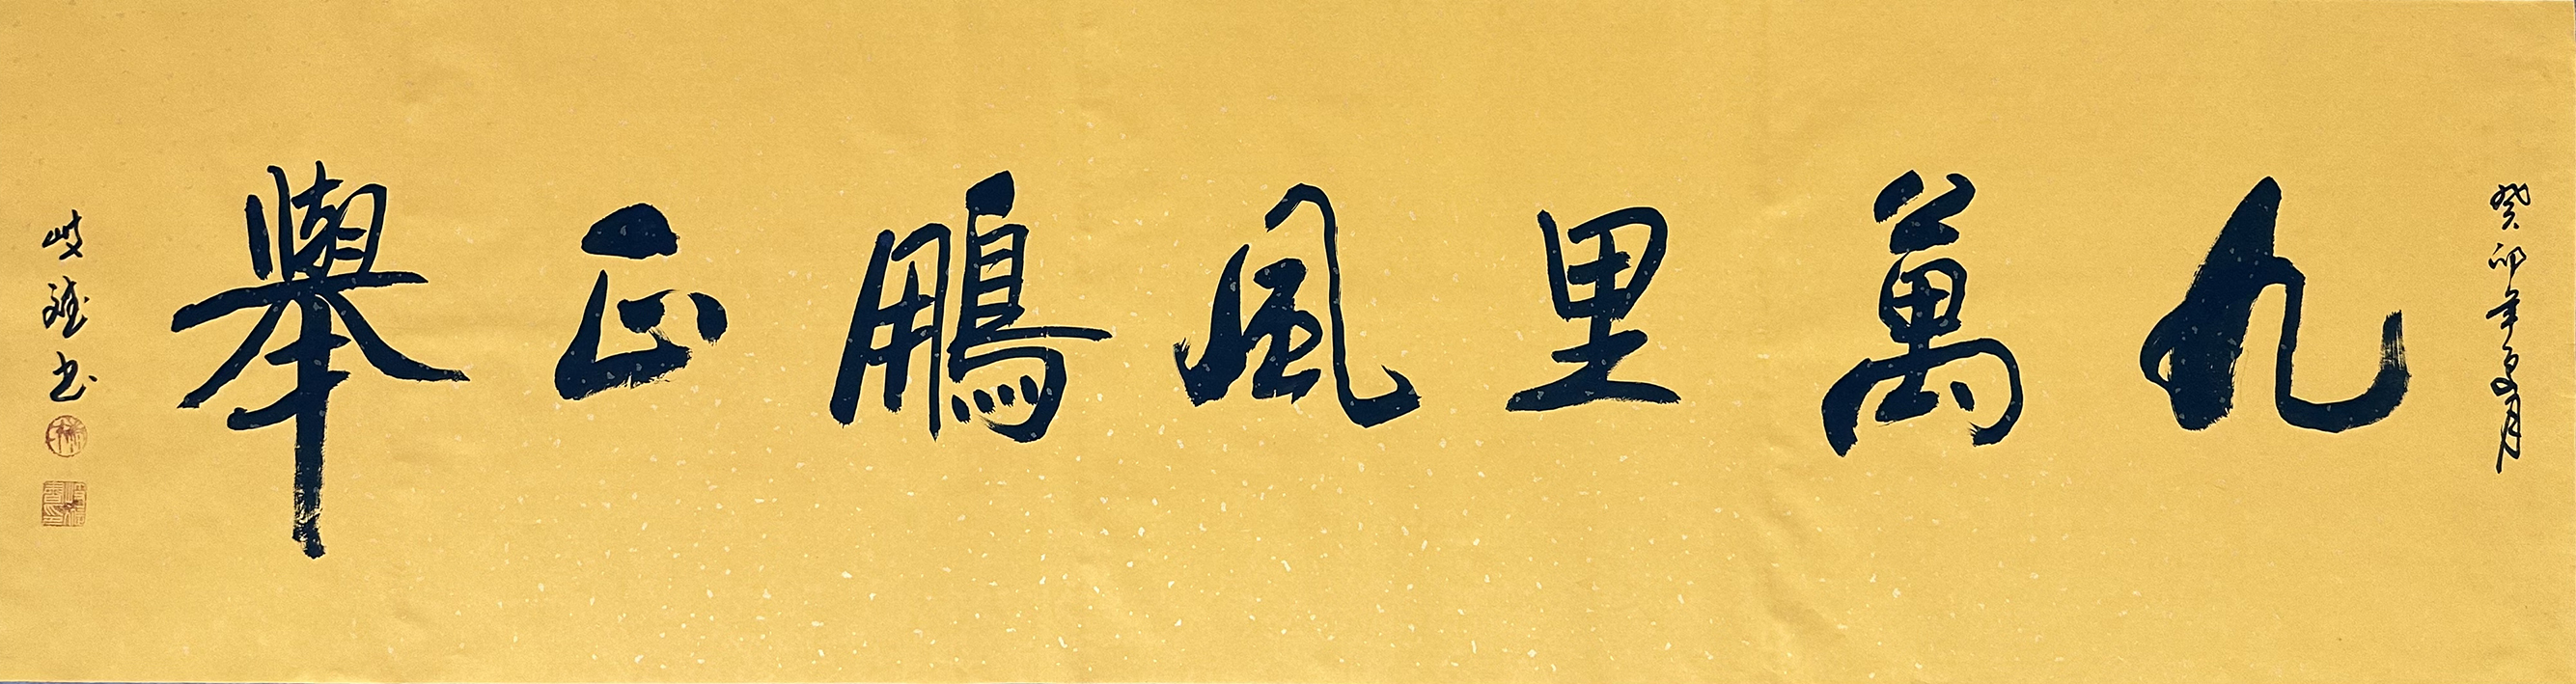 癸卯年夏月
九萬里風鵬正舉
岐雄书